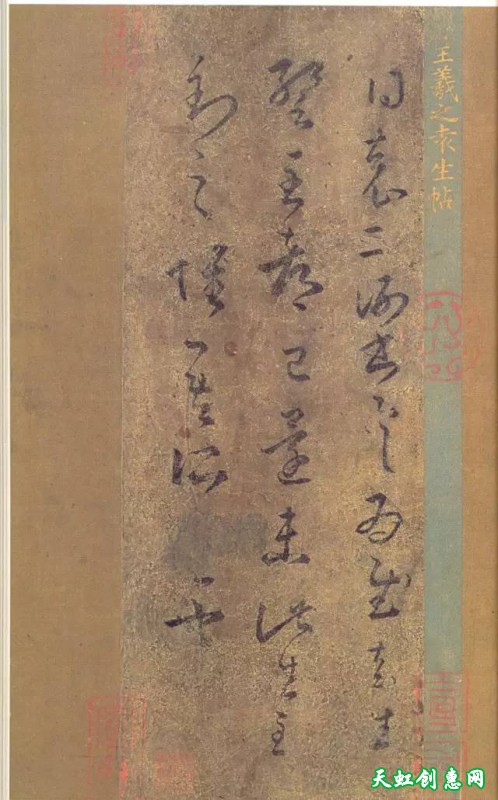 王羲之袁生帖
得袁二謝書具為慰袁生
暫至都已還未此生至
到之懷吾所也
天虹创惠网